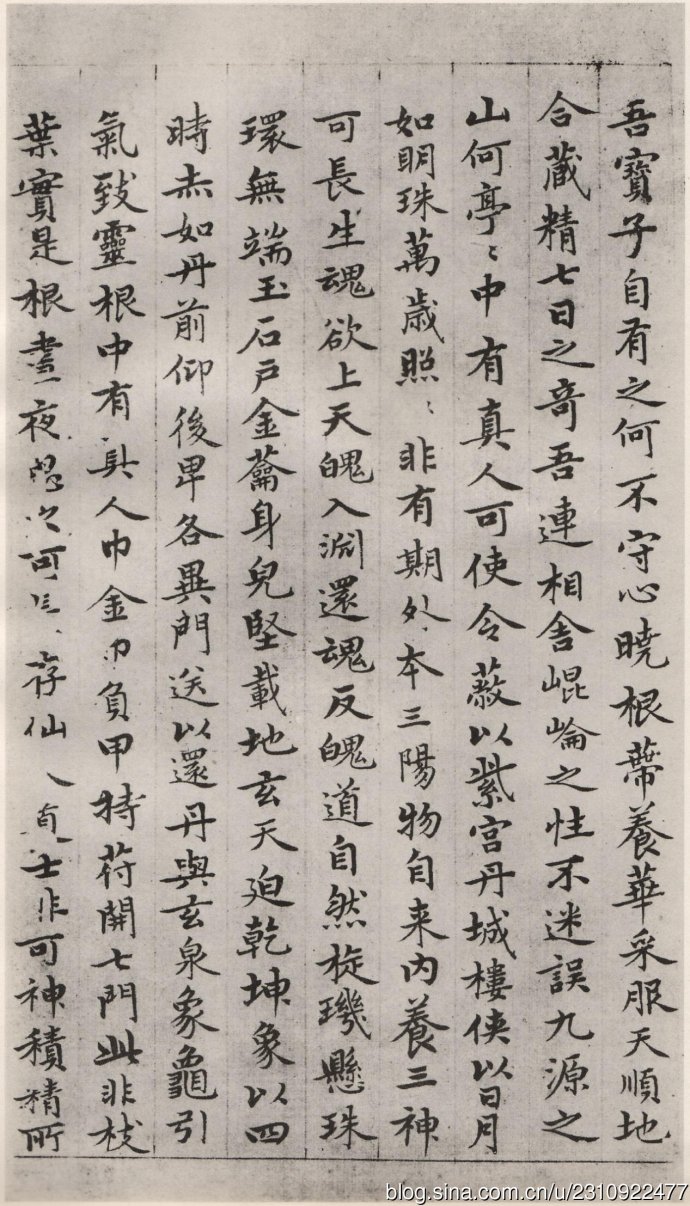 吾寶子自有之何不守心曉根蔕養華采服天順地
合藏精七日之奇吾連相舍崐崘之性不迷誤九源之
山何亭〻中有真人可使令蔽以紫宫丹城樓侠以日月
如明珠萬歲照〻非有期外本三陽物自来内養三神
可長生魂欲上天魄入淵還魂反魄道自然旋璣懸珠
環無端玉石戸金蘥身皃堅載地玄天迫乾坤象以四
時赤如丹前仰後卑各異門送以還丹與玄泉象龜引
氣致靈根中有真人巾金巾負甲持苻開七門此非枝
葉實是根晝夜思之可長存仙人道士非可神積精所
blog.sina.com.cn/u/2310922477